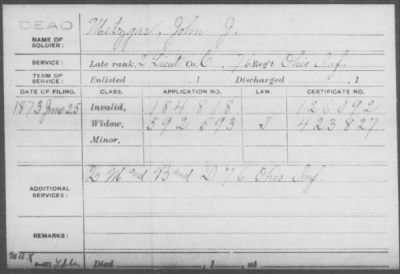 DEAD
NAME OF SOLDIER: Metzgar, John J.
SERVICE: Late rank, 2 Lieut Co. C, 76 Reg't Ohio Inf.
TERM OF SERVICE: Enlisted , 1 Discharged , 1
DATE OF FILING. CLASS. APPLICATION NO. LAW. CERTIFICATE NO.
1873 June 25 Invalid, 184 818 126 092
Widow, 592 593 J 423 827
Minor,
ADDITIONAL SERVICES: Q. M and B and D 76 Ohio Inf.
REMARKS:
Died , 1 , at